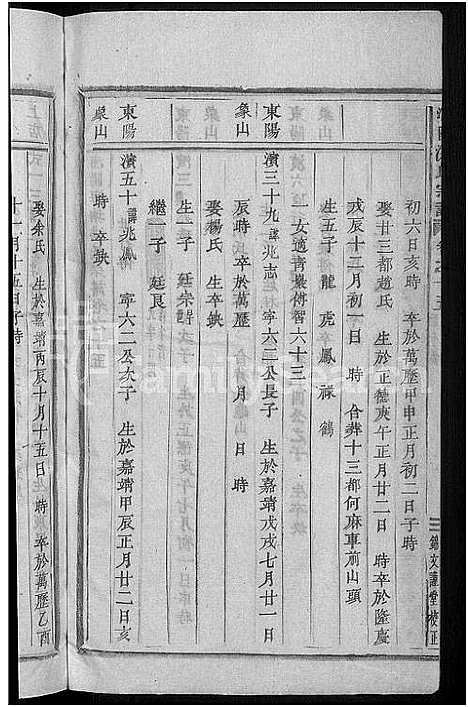 初六日亥時 卒於萬歷甲申正月初二日子時
娶廿三都趙氏 生於正德庚午正月廿二日 時卒於隆慶
戊辰十二月初一日 時 合葬十三都何麻車前山頭
生五子 龍 虎 鳳 祿 鶴
一女適青巖傅智六十三
東陽 濱三十九諱兆志 字六三公長子 生於嘉靖戊戌七月廿一日
象山 辰時 卒於萬歷 月 日 時
娶楊氏 生卒缺
生一子 廷宗
繼一子 廷良
東陽 濱五十諱兆鳳 字六二公次子 生於嘉靖甲辰正月廿二日亥
象山 時 卒缺
娶余氏 生於嘉靖丙辰十月十五日 時 卒於萬歷乙酉
十一月十五日子時
錫文謹堂校正